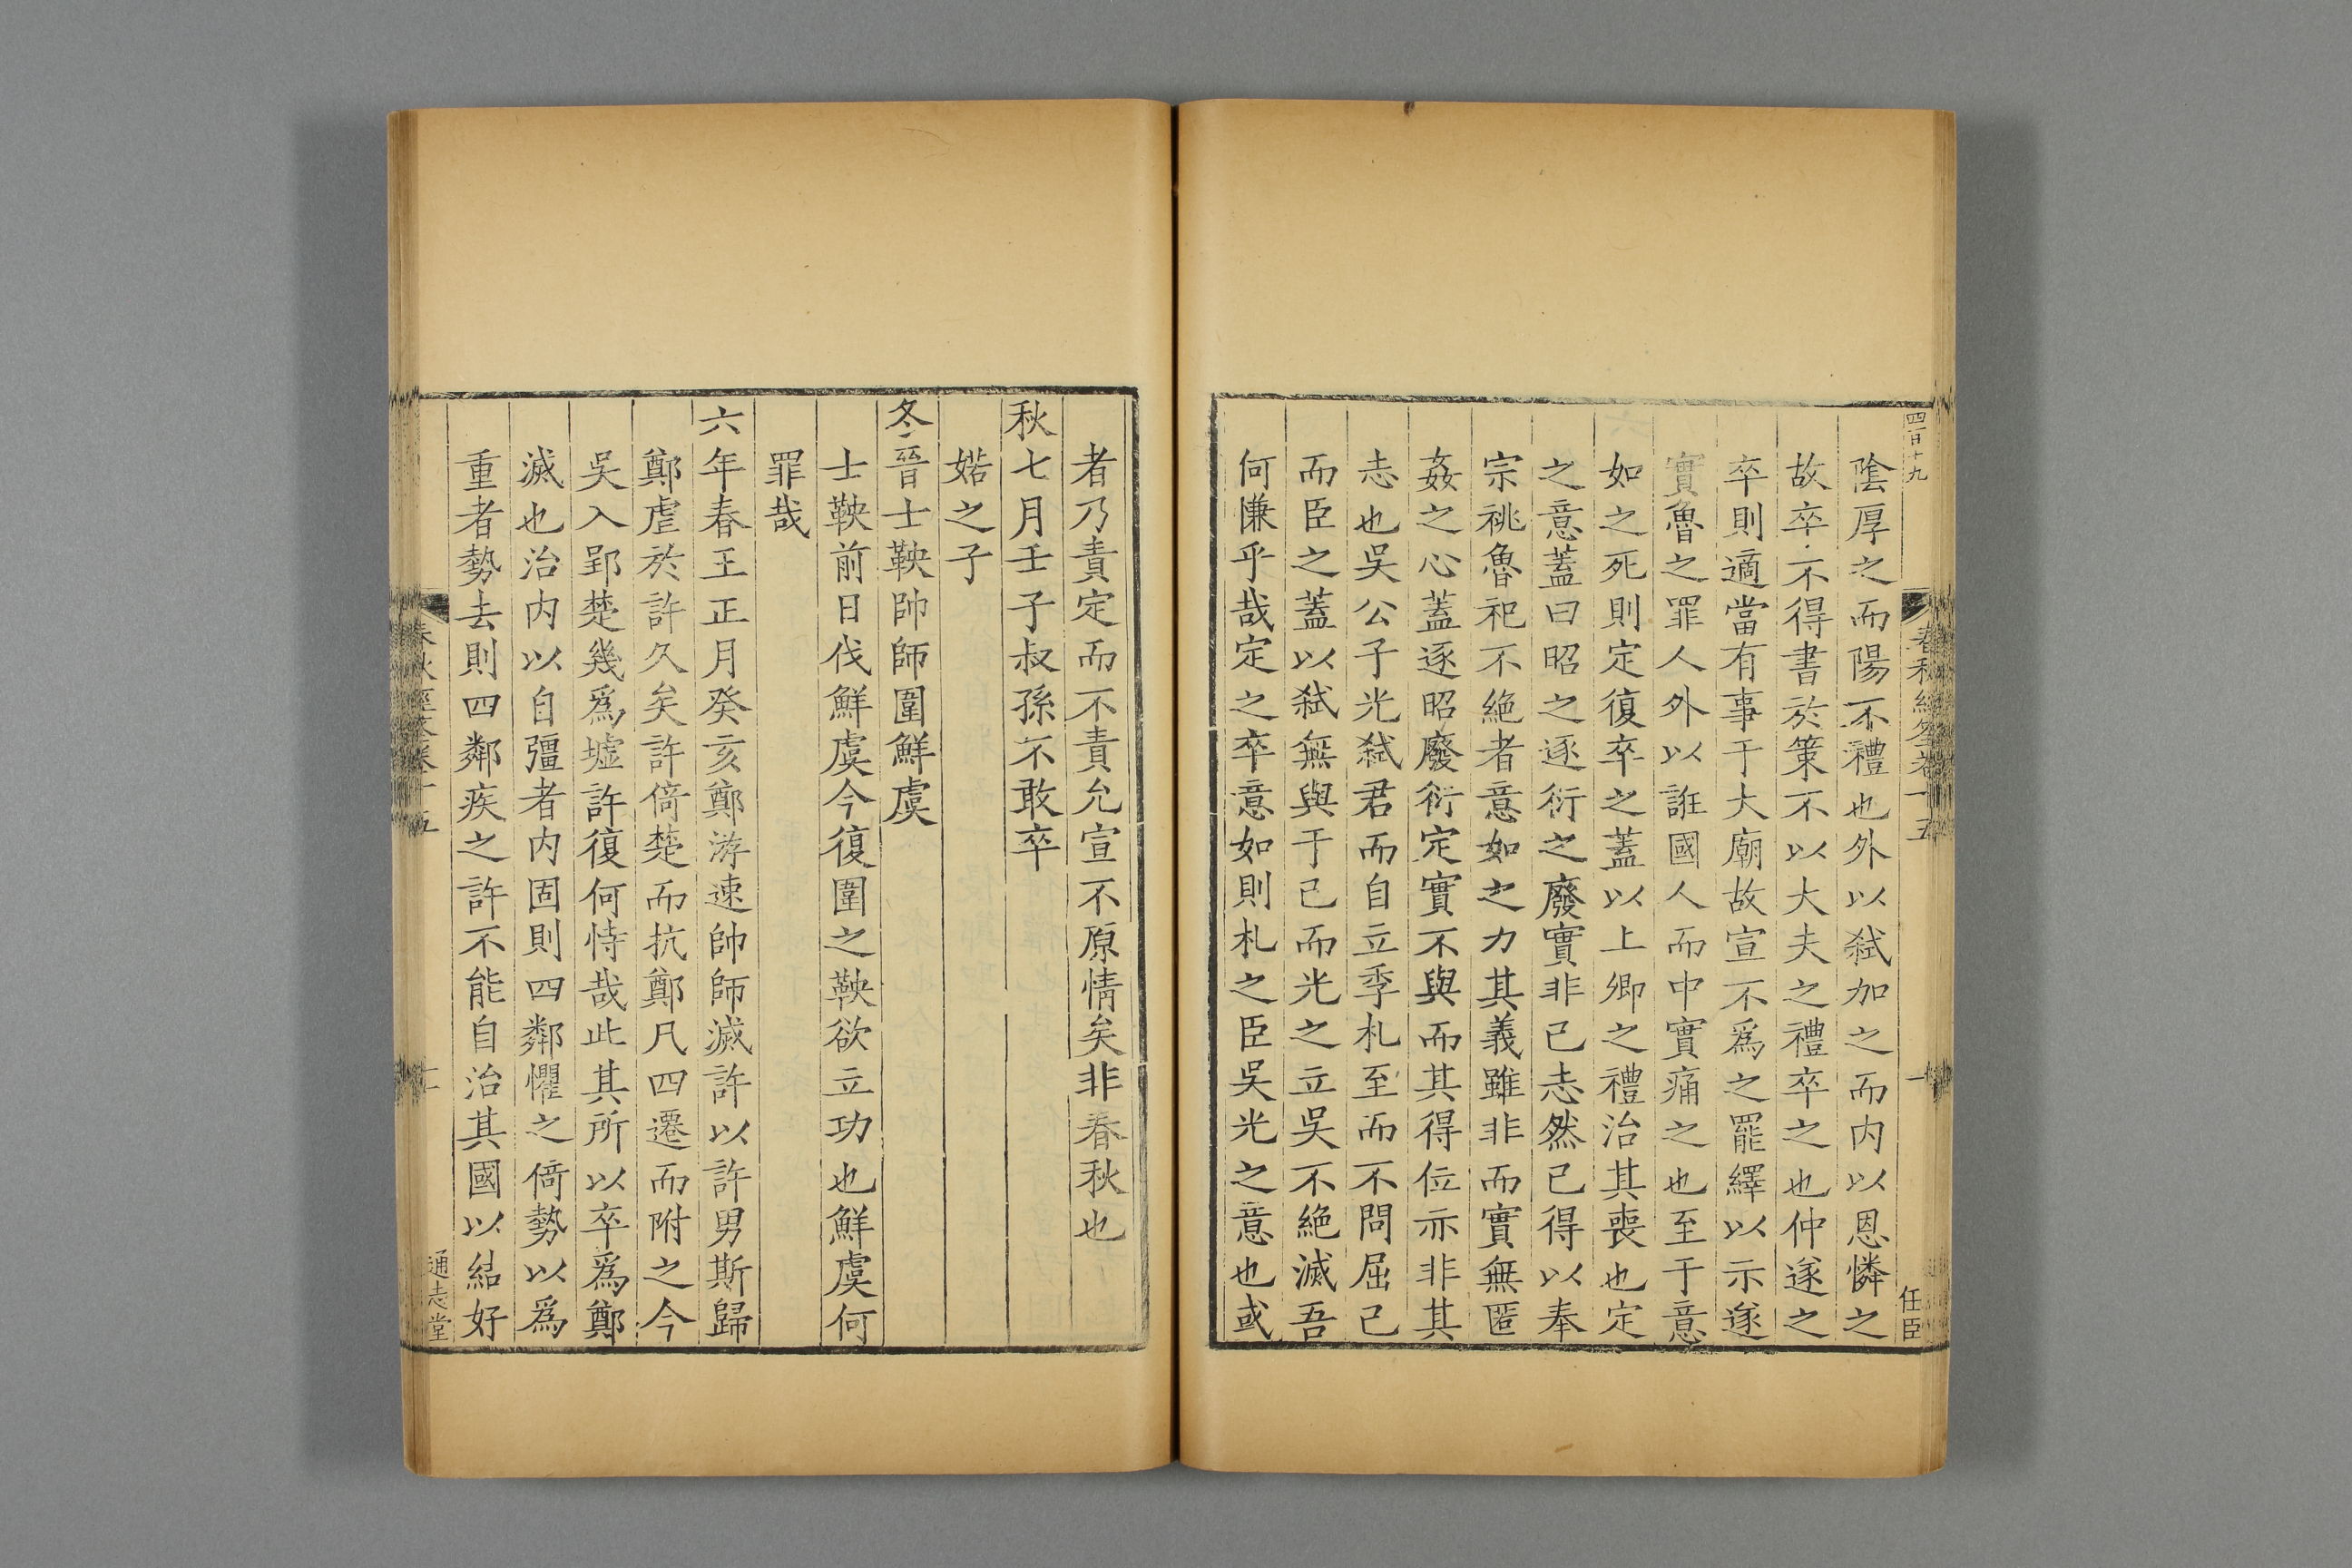 四百十九
春秋經筌卷十五
任臣
陰厚之而陽不禮也外以弑加之而内以恩憐之
故卒不得書於策不以大夫之禮卒之也仲遂之
卒則適當有事于大廟故宣不爲之罷繹以示遂
實魯之罪人外以誑國人而中實痛之也至于意
如之死則定復卒之蓋以上卿之禮治其喪也定
之意蓋曰昭之逐衍之廢實非已志然已得以奉
宗祧魯祀不絶者意如之力其義雖非而實無匿
姦之心蓋逐昭廢衍定實不與而其得位亦非其
志也吳公子光弑君而自立季札至而不問屈已
而臣之蓋以弑無與于已而光之立吳不絶滅吾
何慊乎哉定之卒意如則札之臣吳光之意也或
者乃責定而不責允宣不原情矣非春秋也
秋七月壬子叔孫不敢卒
婼之子
冬晉士鞅帥師圍鮮虞
士鞅前日伐鮮虞今復圍之鞅欲立功也鮮虞何
罪哉
六年春王正月癸亥鄭游速帥師滅許以許男斯歸
鄭虐於許久矣許倚楚而抗鄭凡四遷而附之今
吳入郢楚幾爲墟許復何恃哉此其所以卒爲鄭
滅也治内以自彊者内固則四鄰懼之倚勢以爲
重者勢去則四鄰疾之許不能自治其國以結好
春秋經筌卷十五
通志堂